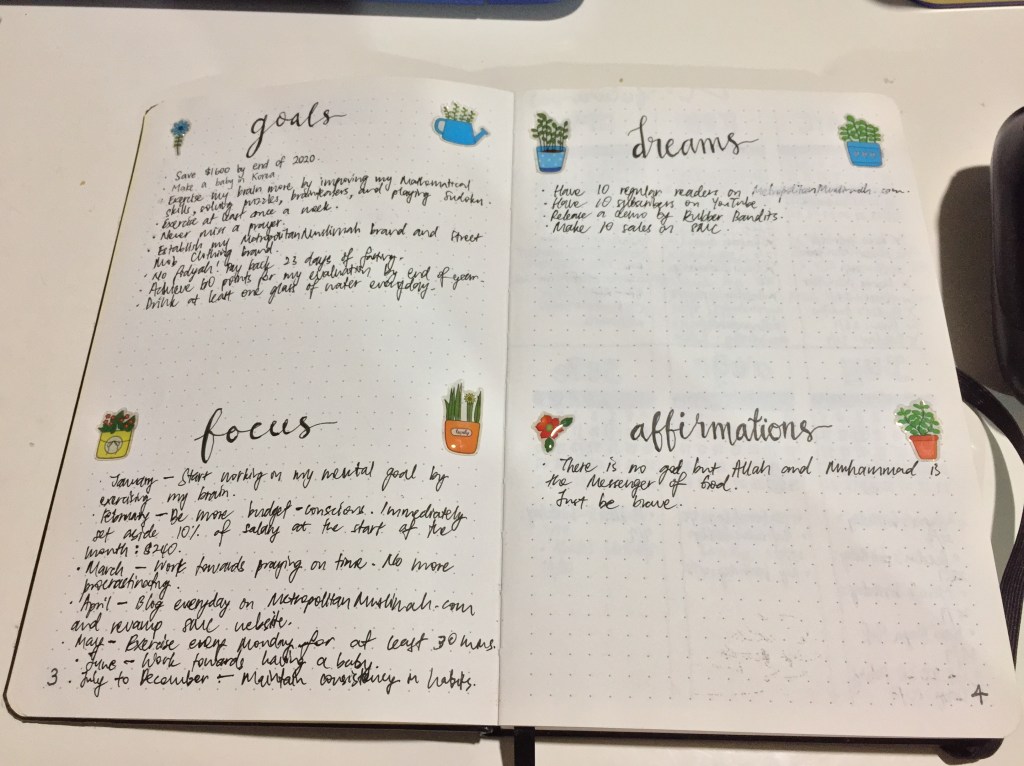 goals
· Save $1600 by end of 2020.
· Make a baby in Korea.
· Exercise my brain more, by improving my Mathematical
skills, solving puzzles, brainteasers, and playing Sudoku.
· Exercise at least once a week.
· Never miss a prayer.
· Establish my MetropolitanMuslimah brand and Street
Mob Clothing brand.
· No Fidyah! Pay back 23 days of fasting.
· Achieve 60 points for my evaluation by end of year.
· Drink at least one glass of water everyday.
focus
· January – Start working on my mental goal by
exercising my brain.
· February – Be more budget-conscious. Immediately
set aside 10% of salary at the start of the
month: $240.
· March – Work towards praying on time. No more
procrastinating.
· April – Blog everyday on MetropolitanMuslimah.com
and revamp SMC website.
· May – Exercise every Monday for at least 30 mins.
· June – Work towards having a baby.
· July to December – Maintain consistency in habits.
3
dreams
· Have 10 regular readers on MetropolitanMuslimah.com.
· Have 10 subscribers on YouTube.
· Release a demo by Rubber Bandits.
· Make 10 sales on SMC.
affirmations
· There is no god but Allah and Muhammad is
the Messenger of God.
· Just be brave.
4